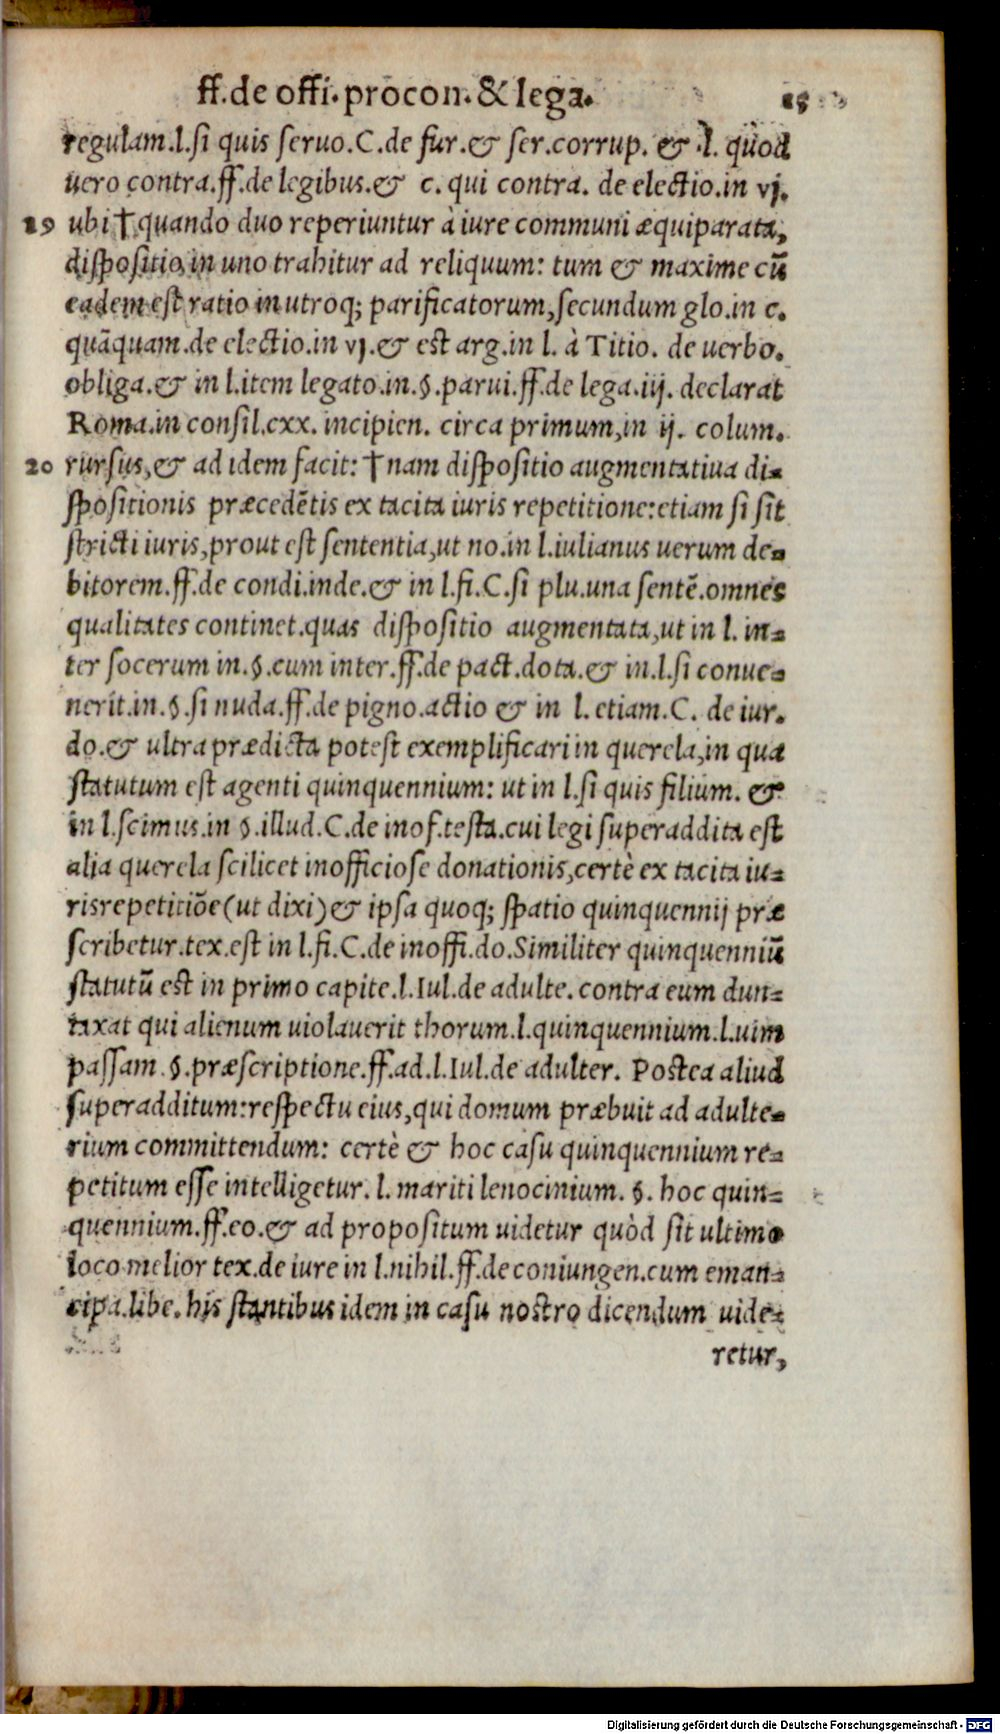 ff.de offi.procon.& lega. 15
regulam.l.si quis seruo.C.de fur.& ser.corrup. & .l. quòd
uero contra.ff.de legibus.& c. qui contra. de electio.in vj.
19 ubi † quando duo reperiuntur à iure communi æquiparata,
dispositio in uno trahitur ad reliquum: tum & maxime cū
eadem est ratio in utroq; parificatorum, secundum glo.in c.
quāquam.de electio.in vj.& est arg.in l. à Titio. de uerbo.
obliga.& in l.item legato.in.§.parui.ff.de lega.iij. declarat
Roma.in consil.cxx. incipien. circa primum,in ij. colum.
20 rursus,& ad idem facit: † nam dispositio augmentatiua di-
spositionis præcedētis ex tacita iuris repetitione:etiam si sit
stricti iuris,prout est sententia,ut no.in l.iulianus uerum de-
bitorem.ff.de condi.inde.& in l.fi.C.si plu.una sentē.omnes
qualitates continet.quas dispositio augmentata,ut in l. in-
ter socerum in.§.cum inter.ff.de pact.dota.& in.l.si conue-
nerit.in.§.si nuda.ff.de pigno.actio & in l. etiam.C. de iur.
do.& ultra prædicta potest exemplificari in querela,in qua
statutum est agenti quinquennium: ut in l.si quis filium. &
in l.scimus.in §.illud.C.de inof.testa.cui legi superaddita est
alia querela scilicet inofficiose donationis,certè ex tacita iu-
risrepetitiōe(ut dixi)& ipsa quoq; spatio quinquennij præ
scribetur.tex.est in l.fi.C.de inoffi.do.Similiter quinquenniū
statutū est in primo capite.l.Iul.de adulte. contra eum dun-
taxat qui alienum uiolauerit thorum.l.quinquennium.l.uim
passam.§.præscriptione.ff.ad.l.Iul.de adulter. Postea aliud
superadditum:respectu eius,qui domum præbuit ad adulte-
rium committendum: certè & hoc casu quinquennium re-
petitum esse intelligetur. l. mariti lenocinium. §. hoc quin-
quennium.ff.eo.& ad propositum uidetur quòd sit ultimo
loco melior tex.de iure in l.nihil.ff.de coniungen.cum eman-
cipa.libe. his stantibus idem in casu nostro dicendum uide-
retur,
Digitalisierung gefördert durch die Deutsche Forschungsgemeinschaft - DFG